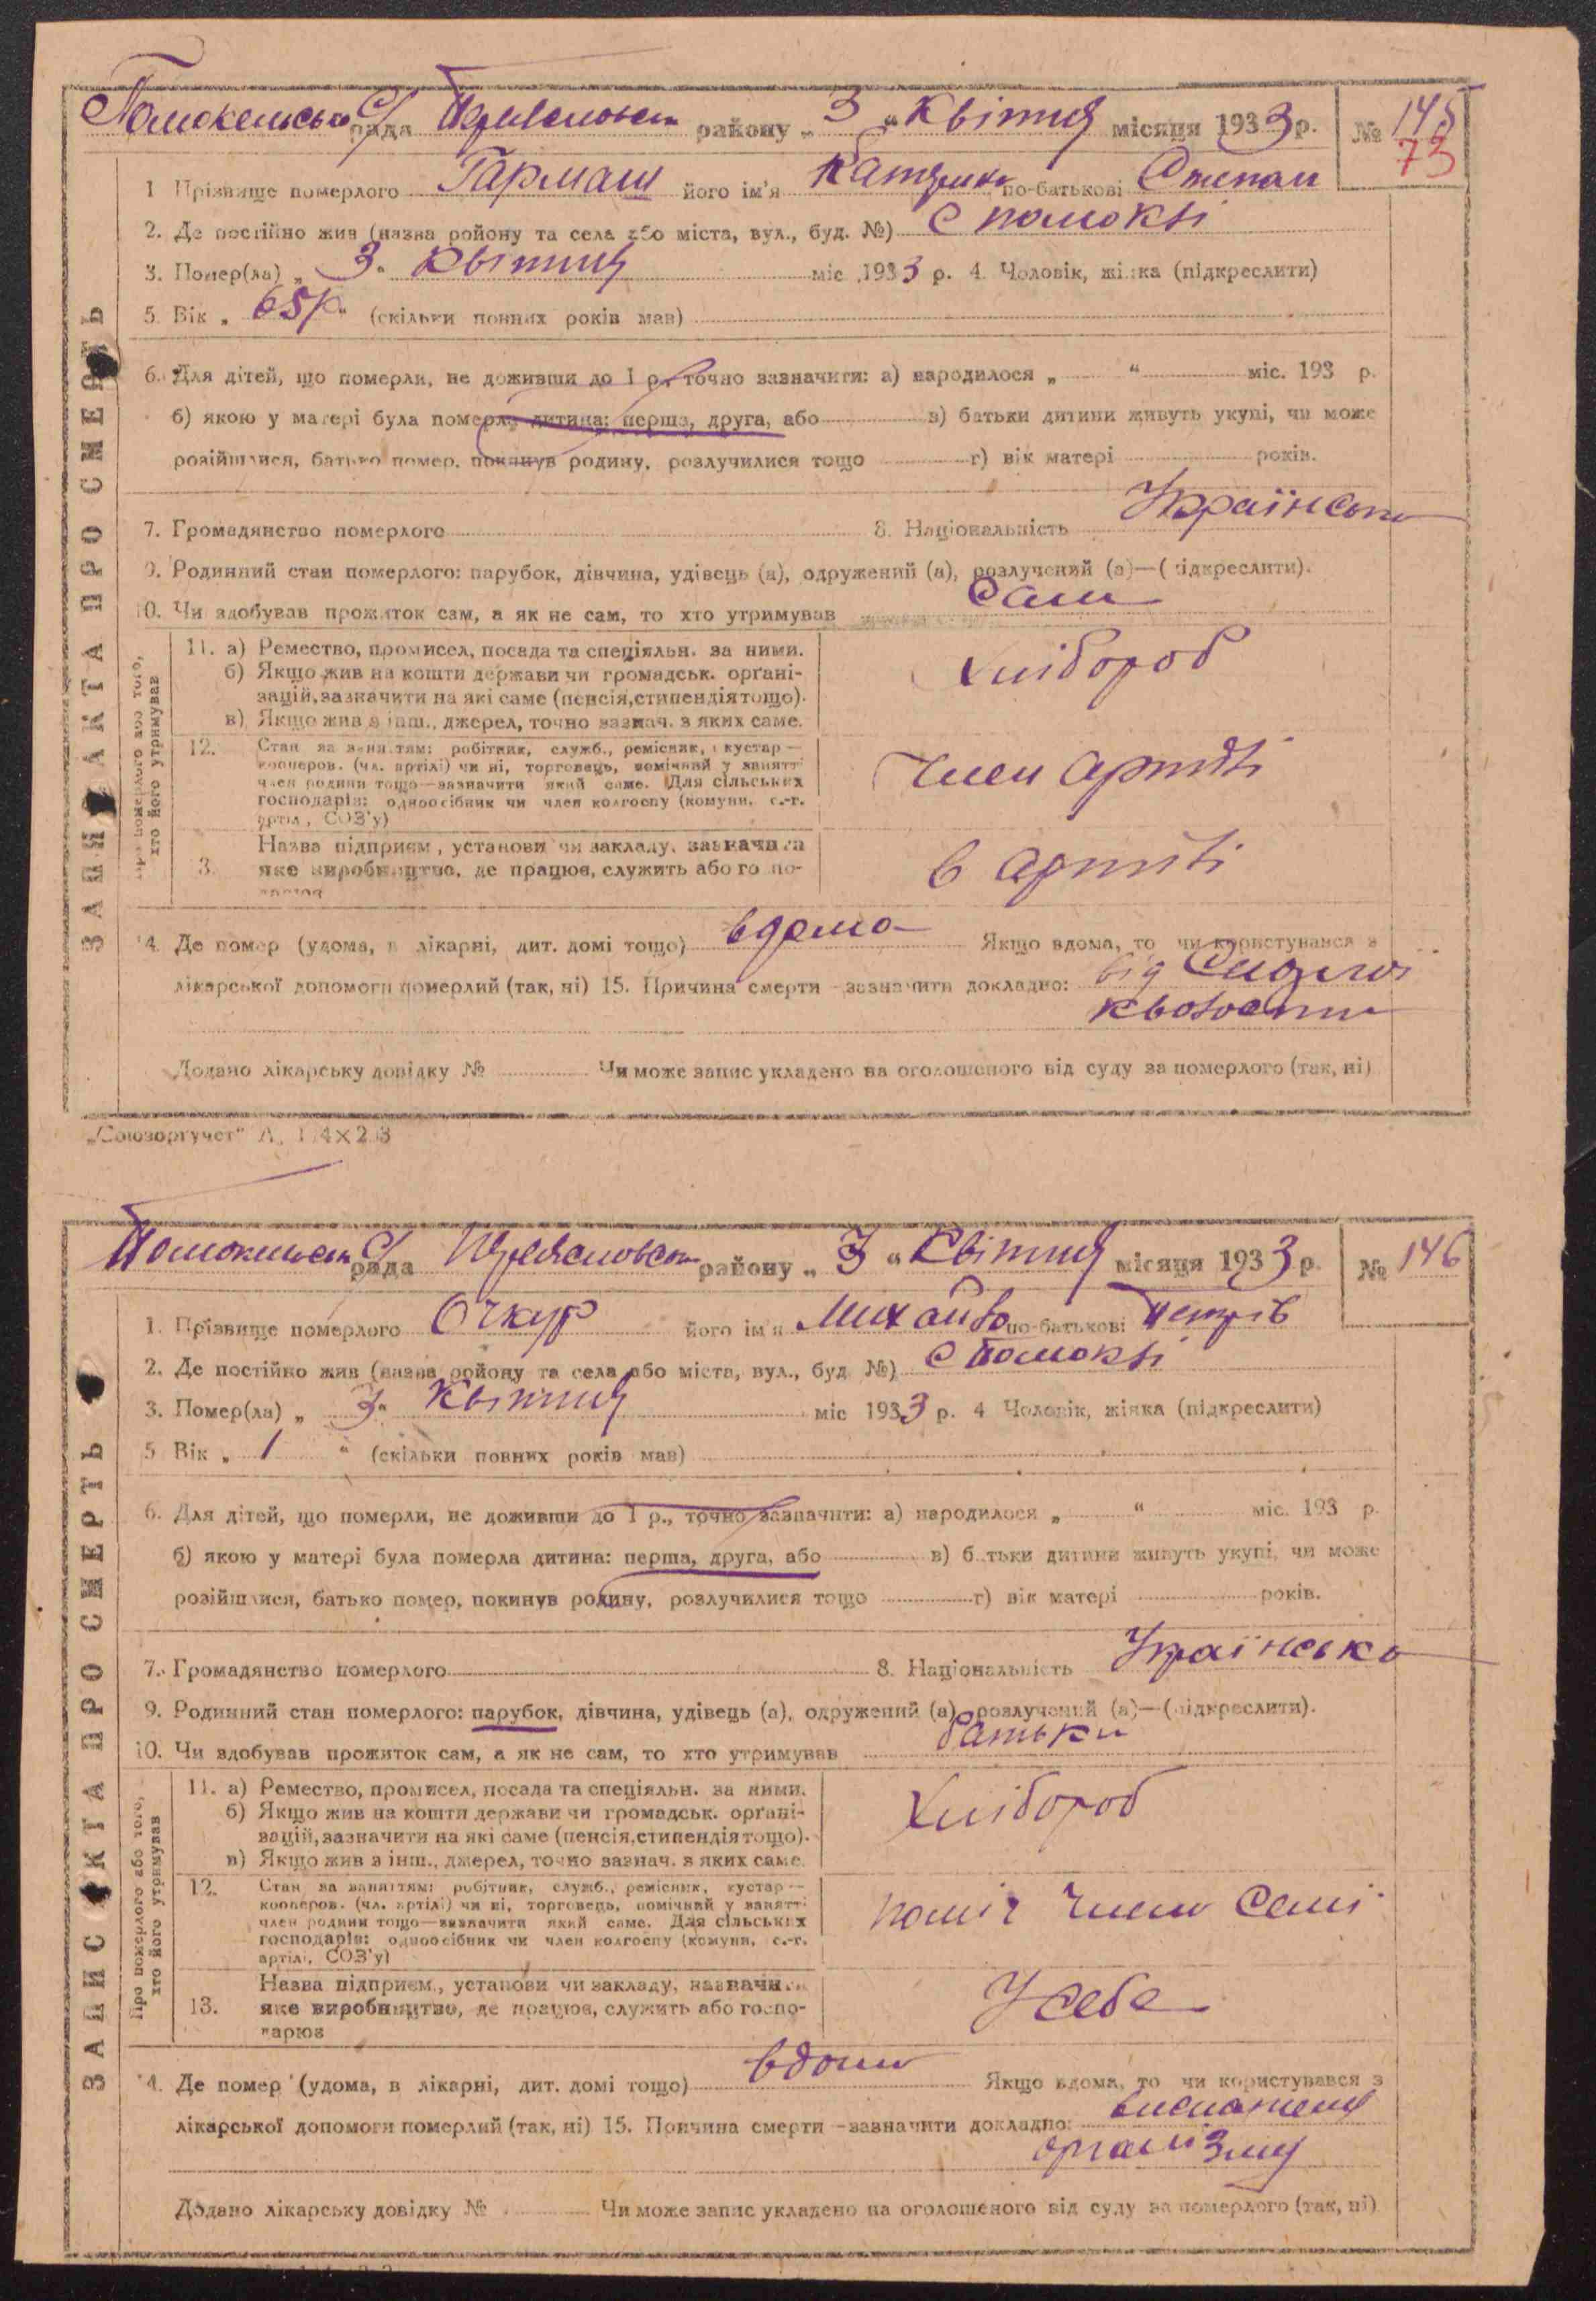 Помокельська С/рада Переяславськ району „ 3 “ Квітня місяця 1933 р. № 145
73
1. Прізвище померлого Гармаш його ім'я по-батькові Степан
2. Де постійно жив (назва ройону та села або міста, вул., буд. №) С Помоклі
3. Помер(ла) „ 3 “ Квітня міс. 1933 р. 4. Чоловік, жінка (підкреслити)
5. Вік „ 65 р. “ (скільки повних років мав)
6. Для дітей, що померли, не доживши до 1 р., точно зазначити: а) народилося „ “ міс. 193 р.
б) якою у матері була померла дитина: перша, друга, або в) батьки дитини живуть укупі, чи може
розійшлися, батько помер, покинув родину, розлучилися тощо г) вік матері років.
7. Громадянство померлого 8. Національність Українська
9. Родинний стан померлого: парубок, дівчина, удівець (а), одружений (а), розлучений (а)—(підкреслити).
10. Чи здобував прожиток сам, а як не сам, то хто утримував Сам
ЗАПИС АКТА ПРО СМЕРТЬ
Про померлого або того,
хто його утримував
11. а) Ремество, промисел, посада та спеціяльн. за ними.
б) Якщо жив на кошти держави чи громадськ. орґані-
зацій, зазначити на які саме (пенсія, стипендія тощо).
в) Якщо жив з інш., джерел, точно зазнач. з яких саме.
Хлібороб
12. Стан за заняттям: робітник, служб., ремісник, кустар—
кооперов. (чл. артілі) чи ні, торговець, помічний у занятті
член родини тощо—зазначити який саме. Для сільських
господарів: одноосібник чи член колгоспу (комуни, с.-г.
артіл., СОЗ'у)
Член артілі
13. Назва підприєм., установи чи закладу, зазначити
яке виробництво, де працює, служить або госпо-
дарює
в артілі
14. Де помер (удома, в лікарні, дит. домі тощо) вдома Якщо вдома, то чи користувався з
лікарської допомоги померлий (так, ні) 15. Причина смерти—зазначити докладно: від
Додано лікарську довідку № Чи може запис укладено на оголошеного від суду за померлого (так, ні)
„Союзоргучет“
Помокельська С/рада Переяславськ району „ 3 “ Квітня місяця 1933 р. № 146
1. Прізвище померлого Очкур його ім'я Михайло по-батькові Петрів
2. Де постійно жив (назва ройону та села або міста, вул., буд. №) С Помоклі
3. Помер(ла) „ 3 “ Квітня міс. 1933 р. 4. Чоловік, жінка (підкреслити)
5. Вік „ 1 “ (скільки повних років мав)
6. Для дітей, що померли, не доживши до 1 р., точно зазначити: а) народилося „ “ міс. 193 р.
б) якою у матері була померла дитина: перша, друга, або в) батьки дитини живуть укупі, чи може
розійшлися, батько помер, покинув родину, розлучилися тощо г) вік матері років.
7. Громадянство померлого 8. Національність Українська
9. Родинний стан померлого: парубок, дівчина, удівець (а), одружений (а), розлучений (а)—(підкреслити).
10. Чи здобував прожиток сам, а як не сам, то хто утримував батьки
ЗАПИС АКТА ПРО СМЕРТЬ
Про померлого або того,
хто його утримував
11. а) Ремество, промисел, посада та спеціяльн. за ними.
б) Якщо жив на кошти держави чи громадськ. орґані-
зацій, зазначити на які саме (пенсія, стипендія тощо).
в) Якщо жив з інш., джерел, точно зазнач. з яких саме.
Хлібороб
12. Стан за заняттям: робітник, служб., ремісник, кустар—
кооперов. (чл. артілі) чи ні, торговець, помічний у занятті
член родини тощо—зазначити який саме. Для сільських
господарів: одноосібник чи член колгоспу (комуни, с.-г.
артілі, СОЗ'у)
поміч член семі
13. Назва підприєм., установи чи закладу, зазначити
яке виробництво, де працює, служить або госпо-
дарює
У себе
14. Де помер (удома, в лікарні, дит. домі тощо) вдома Якщо вдома, то чи користувався з
лікарської допомоги померлий (так, ні) 15. Причина смерти—зазначити докладно: виснаження
організму
Додано лікарську довідку № Чи може запис укладено на оголошеного від суду за померлого (так, ні)